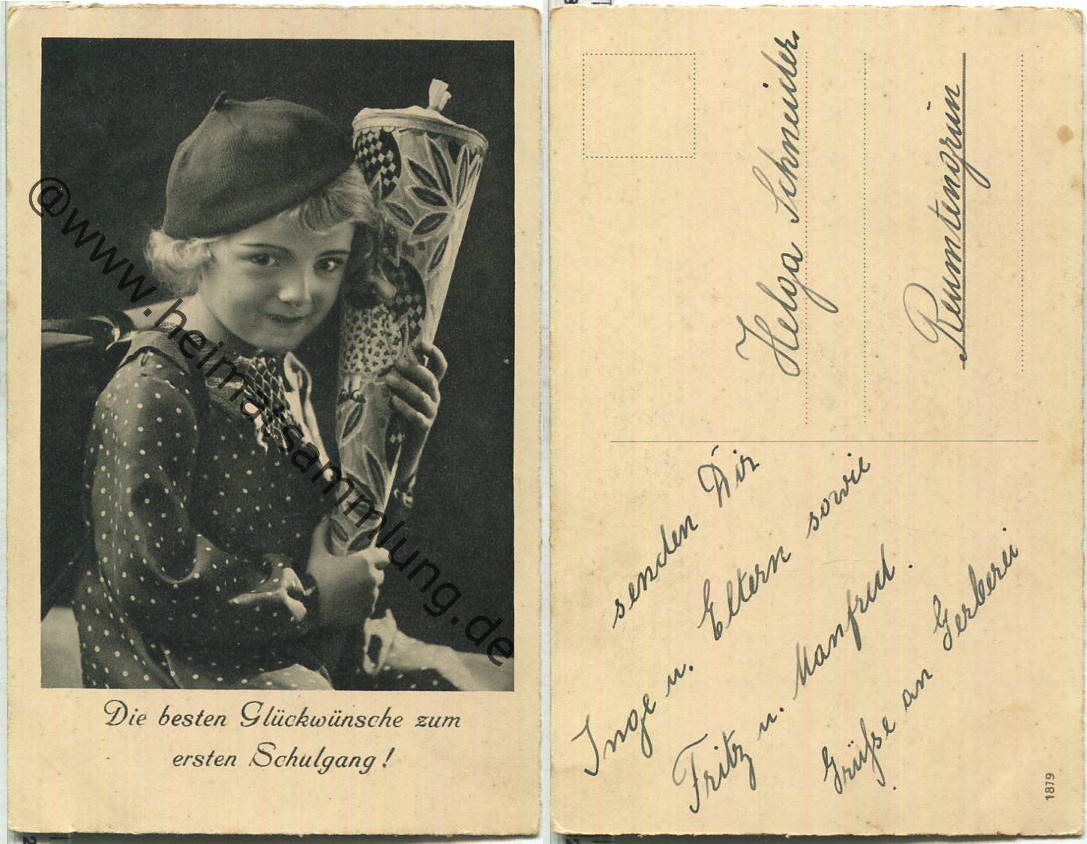 @www.heimatsammlung.de
Die besten Glückwünsche zum
ersten Schulgang!
Helga Schneider.
Reumtengrün
senden Dir
Inge u. Eltern sowie
Fritz u. Manfred.
Grüße an Gerberei
1879